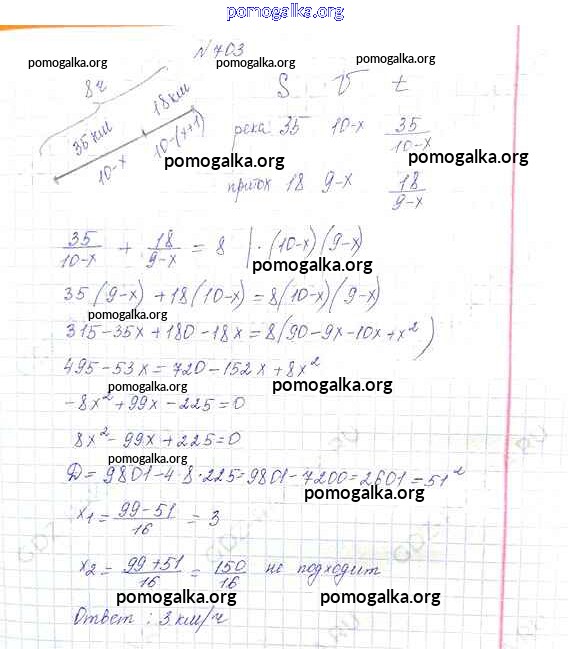 pomogalka.org
№ 703
pomogalka.org pomogalka.org pomogalka.org
8ч
35 км 18 км
10-x 10-(x+1)
S V t
река 35 10-x 35/(10-x)
pomogalka.org pomogalka.org
приток 18 9-x 18/(9-x)
35/(10-x) + 18/(9-x) = 8 | ·(10-x)(9-x)
pomogalka.org
35(9-x) + 18(10-x) = 8(10-x)(9-x)
pomogalka.org
315-35x+180-18x=8(90-9x-10x+x²)
495-53x=720-152x+8x²
pomogalka.org pomogalka.org
-8x²+99x-225=0
8x²-99x+225=0
pomogalka.org
D=9801-4·8·225=9801-7200=2601=51²
pomogalka.org
x₁=(99-51)/16=3
x₂=(99+51)/16=150/16 не подходит
pomogalka.org pomogalka.org
Ответ: 3 км/ч